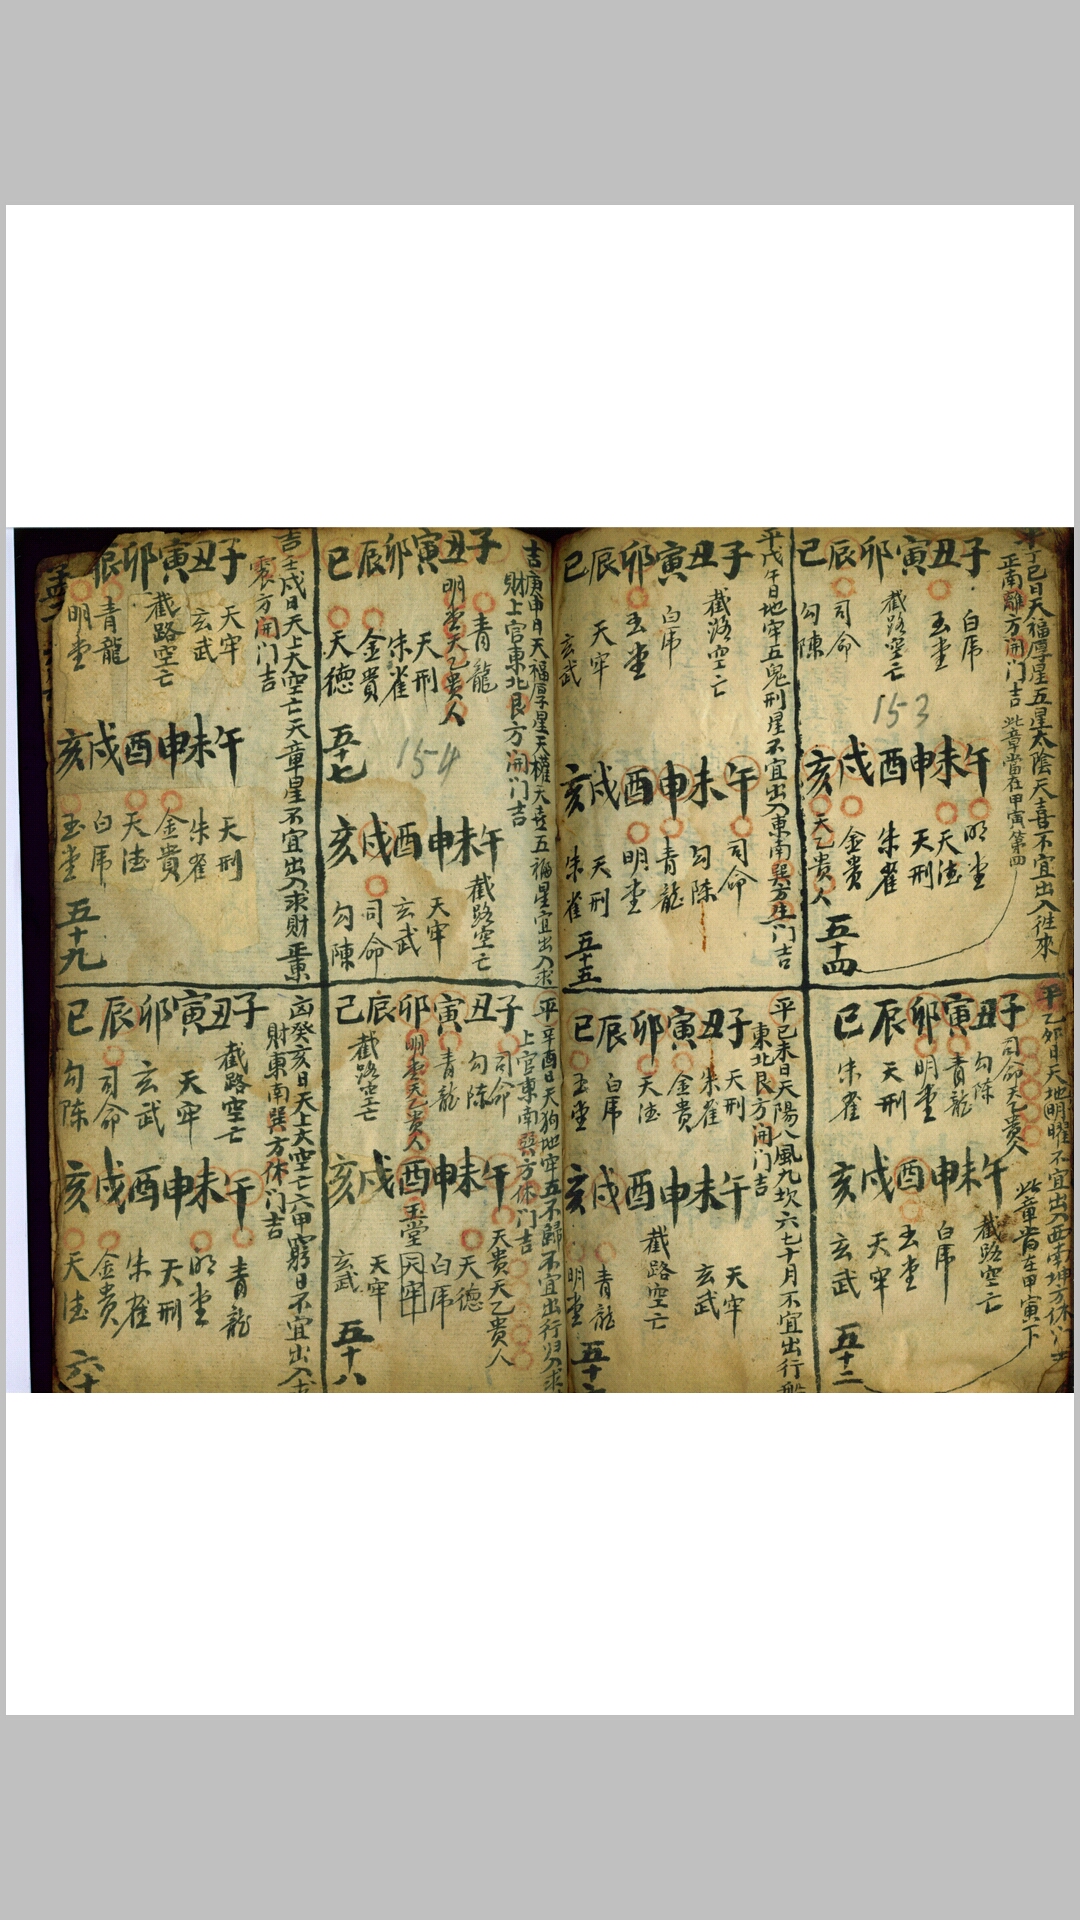 平丁巳日天福厚星五星太陰天喜不宜出入往來
正南離方開門吉 此章當在甲寅第四
子丑寅卯辰巳
白虎
玉堂
截路空亡
司命
勾陳
153
午未申酉戌亥
明堂
天德
天刑
朱雀
金貴
天乙貴人
五十四
平戊午日地牢五鬼刑星不宜出入東南巽方生门吉
子丑寅卯辰巳
截路空亡
白虎
玉堂
天牢
玄武
午未申酉戌亥
司命
勾陳
青龍
明堂
天刑
朱雀
五十五
平乙卯日天地明曜不宜出入西南坤方休门
子丑寅卯辰巳
司命天乙貴人
勾陳
青龍
明堂
天刑
朱雀
此章當在甲寅下
午未申酉戌亥
截路空亡
白虎
玉堂
天牢
玄武
五十二
平己未日天陽八風九坎六七十月不宜出行
東北艮方開门吉
子丑寅卯辰巳
天刑
朱雀
金貴
天德
白虎
玉堂
午未申酉戌亥
天牢
玄武
截路空亡
青龍
明堂
五十
吉庚申日天福厚星天權天喜五福星宜出入求
財上官東北艮方開门吉
子丑寅卯辰巳
青龍
明堂天乙貴人
天刑
朱雀
金貴
天德
154
五十七
午未申酉戌亥
截路空亡
天牢
玄武
司命
勾陳
吉壬戌日天上大空亡天章星不宜出入求財正東
震方開门吉
子丑寅卯辰
天牢
玄武
截路空亡
青龍
明堂
午未申酉戌亥
天刑
朱雀
金貴
天德
白虎
玉堂
五十九
平辛酉日天狗地牢五不歸不宜出行归入求
上官東南巽方休门吉
子丑寅卯辰巳
司命
勾陳
青龍
明堂天乙貴人
截路空亡
午未申酉戌亥
天貴天乙貴人
天德
白虎
玉堂
天牢
天牢
玄武
五十八
凶癸亥日天上大空亡六甲窮日不宜出入求
財東南巽方休门吉
子丑寅卯辰巳
截路空亡
天牢
玄武
司命
勾陳
午未申酉戌亥
青龍
明堂
天刑
朱雀
金貴
天德
六十